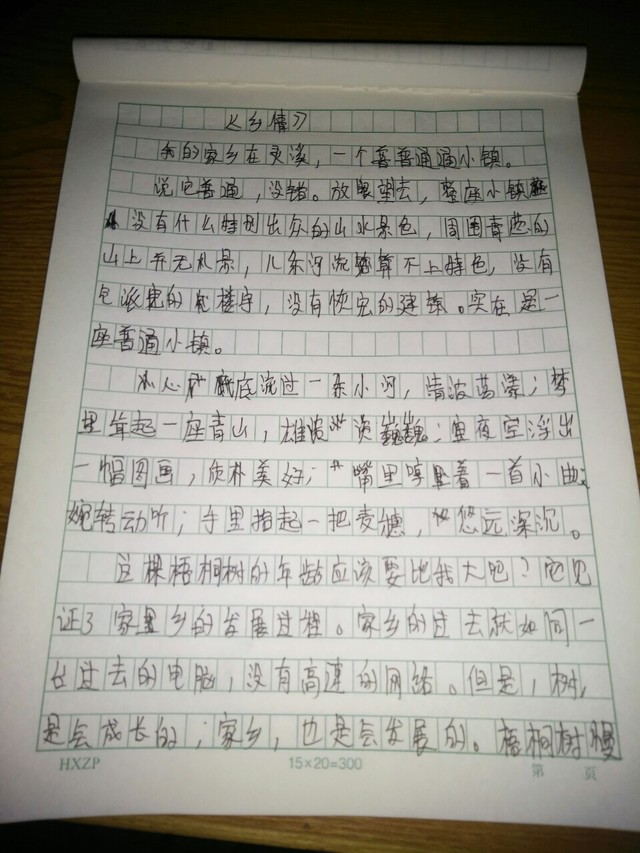 《乡情》
我的家乡在灵溪，一个普普通通小镇。
说它普通，没错。放眼望去，整座小镇
没有什么特别出众的山水景色，周围青葱的
山上并无风景，几条河流算不上特色，没有
气派的楼宇，没有恢宏的建筑。实在是一
座普通小镇。
从心底流过一条小河，清波荡漾；梦
里耸起一座青山，雄姿巍巍；夜空浮出
一幅图画，质朴美好；嘴里哼着一首小曲，
婉转动听；手里拾起一把麦穗，悠远深沉。
这棵梧桐树的年龄应该要比我大吧？它见
证了家乡的发展过程。家乡的过去就如同一
台过去的电脑，没有高速的网络。但是，树，
是会成长的；家乡，也是会发展的。梧桐树慢
HXZP
15×20=300
第 页